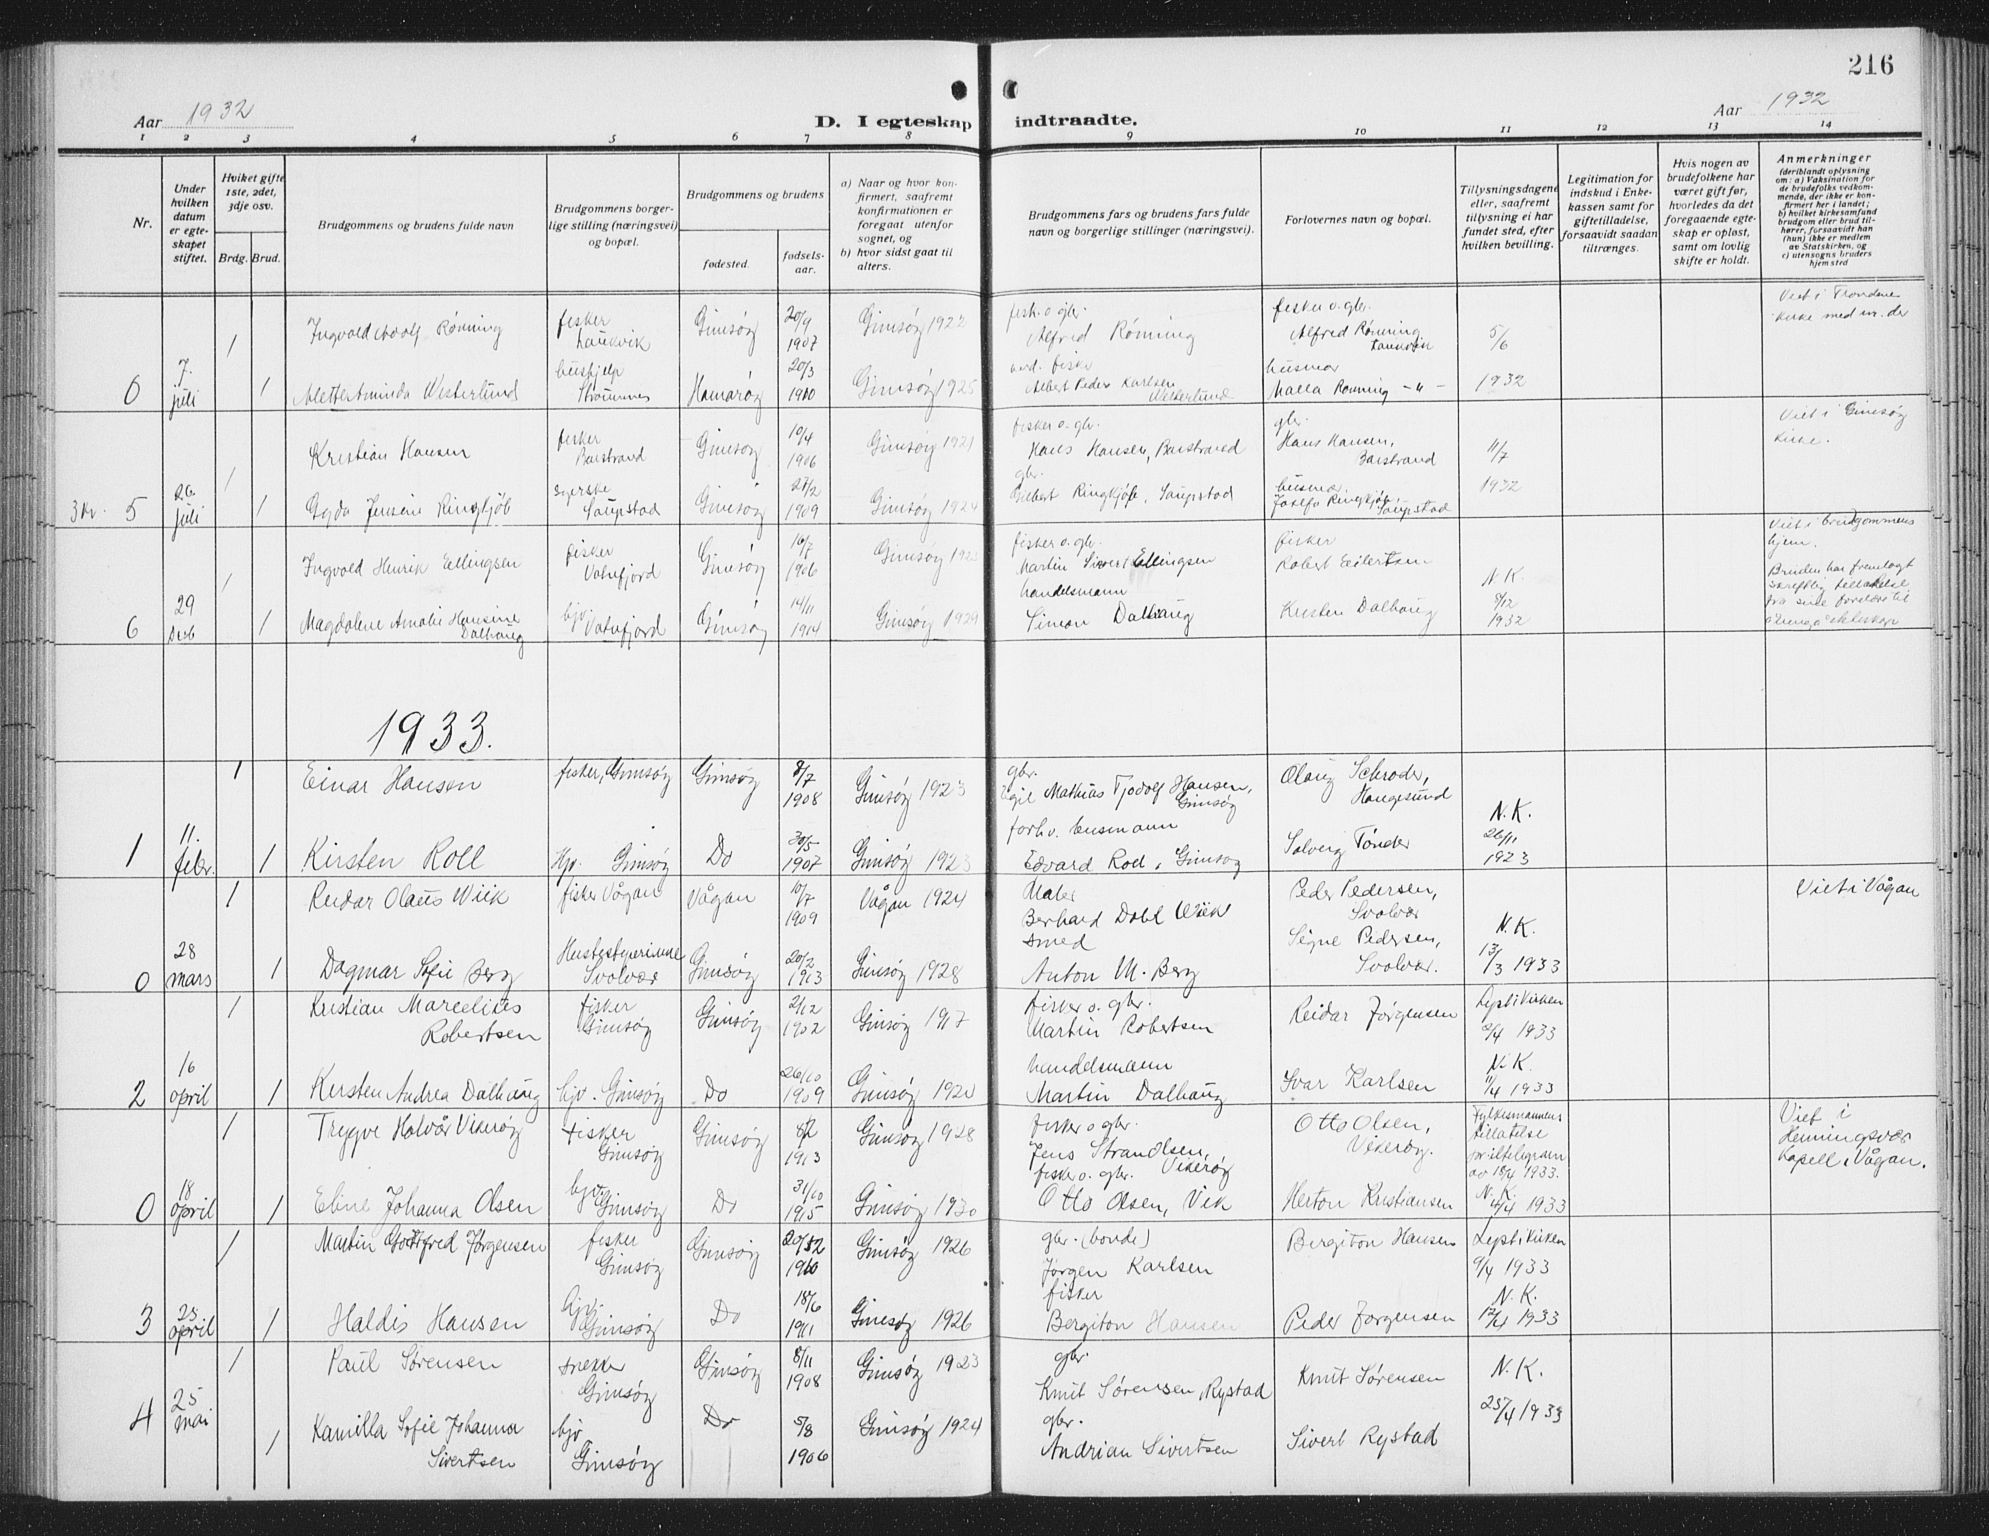 216
Aar 1932
D. I egteskap indtraadte.
Aar 1932
1 2 3 4 5 6 7 8 9 10 11 12 13 14
Nr.
Under hvilken datum er egteskapet stiftet.
Hviket gifte 1ste, 2det, 3dje osv.
Brdg. Brud.
Brudgommens og brudens fulde navn
Brudgommens borgerlige stilling (næringsvei) og bopæl.
Brudgommens og brudens
fødested. fødselsaar.
a) Naar og hvor konfirmert, saafremt konfirmationen er foregaat utenfor sognet, og
b) hvor sidst gaat til alters.
Brudgommens fars og brudens fars fulde navn og borgerlige stillinger (næringsvei).
Forlovernes navn og bopæl.
Tillysningsdagene eller, saafremt tillysning ei har fundet sted, efter hvilken bevilling.
Legitimation for indskud i Enkekassen samt for giftetilladelse, forsaavidt saadan tiltrænges.
Hvis nogen av brudefolkene har været gift før, hvorledes da det foregaaende egteskap er opløst, samt om lovlig skifte er holdt.
Anmerkninger
(deriblandt oplysning om: a) Vaksination for de brudefolks vedkommende, der ikke er konfirmert her i landet; b) hvilket kirkesamfund brudgom eller brud tilhører, forsaavidt han (hun) ikke er medlem av Statskirken, og c) utensogns bruders hjemsted
1 Ingvald Adolf Rønning fisker Laukvik Gimsøy 20/9 1907 Gimsøy 1922 fisk. o. gbr. Alfred Rønning fisker o. gbr. Alfred Rønning Laukvik 5/6 Viet i Trondenes kirke med nr.
0 7. juli 1 Westerlund hushjelp Hamarøy 20/3 1910 Gimsøy 1925 fisker Albert Peder Karlsen Westerlund husmor Malla Rønning - " - 1932
1 Kristian Hansen fisker Barstrand Gimsøy 10/4 1906 Gimsøy 1921 fisker o. gbr. Hans Hansen, Barstrand gbr. Hans Hansen, Barstrand 11/7 Viet i Gimsøy kirke.
5 26. juli 1 Gyda Jensine Ringkjøb syerske Saupstad Gimsøy 27/2 1909 Gimsøy 1924 gbr. Ringkjøb, Saupstad husmor Ringkjøb, Saupstad 1932
1 Ingvald Henrik Ellingsen fisker Vatnfjord Gimsøy 16/7 1906 Gimsøy fisker o. gbr. Martin Sivert Ellingsen fisker Robert Eilertsen Viet i brudgommens hjem.
6 29 Desb 1 Magdalene Amalie Hansine Dalhaug hjv Vatnfjord Gimsøy 14/11 1904 Gimsøy 1929 handelsmann Simon Dalhaug Kristen Dalhaug N.K. 8/12 1932 Bruden har fremlagt skreftlig
1933.
1 Einar Hansen fisker, Gimsøy Gimsøy 8/7 1908 Gimsøy 1923 gbr. Mathias Tjodolf Hansen, Gimsøy Olaug Schrøder, Haugesund
1 11. febr. 1 Kirsten Roll Hjv. Gimsøy Do 30/5 1907 Gimsøy 1923 forhv. husmann Edvard Roll, Gimsøy Solveig Tønder N.K. 26/11 1923
1 Reidar Olaus Wiik fisker Vågan Vågan 10/7 1909 Vågan 1924 Maler Berhard Dahl Wiik Peder Pedersen, Svolvær Viet i Vågan
0 28 mars 1 Dagmar Sofie Berg Svolvær Gimsøy 20/2 1913 Gimsøy 1928 smed Anton M. Berg Signe Pedersen, Svolvær. N.K. 13/3 1933
1 Kristian Marcelius Robertsen fisker Gimsøy Gimsøy 2/12 1902 Gimsøy 1917 fisker o. gbr. Martin Robertsen Reidar Jørgensen Lyst i kirken 2/4 1933
2 16 april 1 Kirsten Andrea Dalhaug hjv. Gimsøy Do 26/10 1909 Gimsøy 1920 handelsmann Martin Dalhaug Ivar Karlsen N.K. 11/4 1933
1 Trygve Halvår Vikerøy fisker Gimsøy Gimsøy 8/2 1913 Gimsøy 1928 fisker o gbr. Jens Strandsen, Vikerøy Otto Olsen, Vikerøy. Fylkesmannens tillatelse pr iltelegram av 18/4 1933. Viet i Henningsvær kapell i Vågan.
0 18 april 1 Eline Johanna Olsen hjv Gimsøy Do 31/10 1915 Gimsøy 1930 fisker o. gbr. Otto Olsen, Vik Herton Kristiansen N.K. 1933
1 Martin Gottfred Jørgensen fisker Gimsøy Gimsøy 1910 Gimsøy 1926 gbr. (bonde) Jørgen Karlsen Bergiton Hansen Lyst i kirken 9/4 1933
3 25. april 1 Haldis Hansen hjv. Gimsøy Do 18/6 1911 Gimsøy 1926 fisker Bergiton Hansen Peder Jørgensen N.K. 12/4 1933
1 Paul Sørensen snekker Gimsøy Gimsøy 8/11 1908 Gimsøy 1923 gbr. Knut Sørensen, Rystad Knut Sørensen N.K.
4 25 mai 1 Kamilla Sofie Johanna Sivertsen hjv Gimsøy Do 5/8 1906 Gimsøy 1924 gbr. Andrian Sivertsen Sivert Rystad 25/4 1933